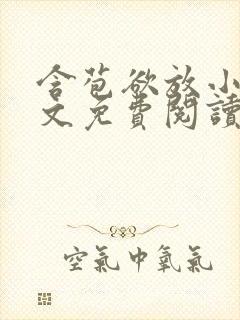 含苞欲放小
文免費閱讀
空氣中氧氣